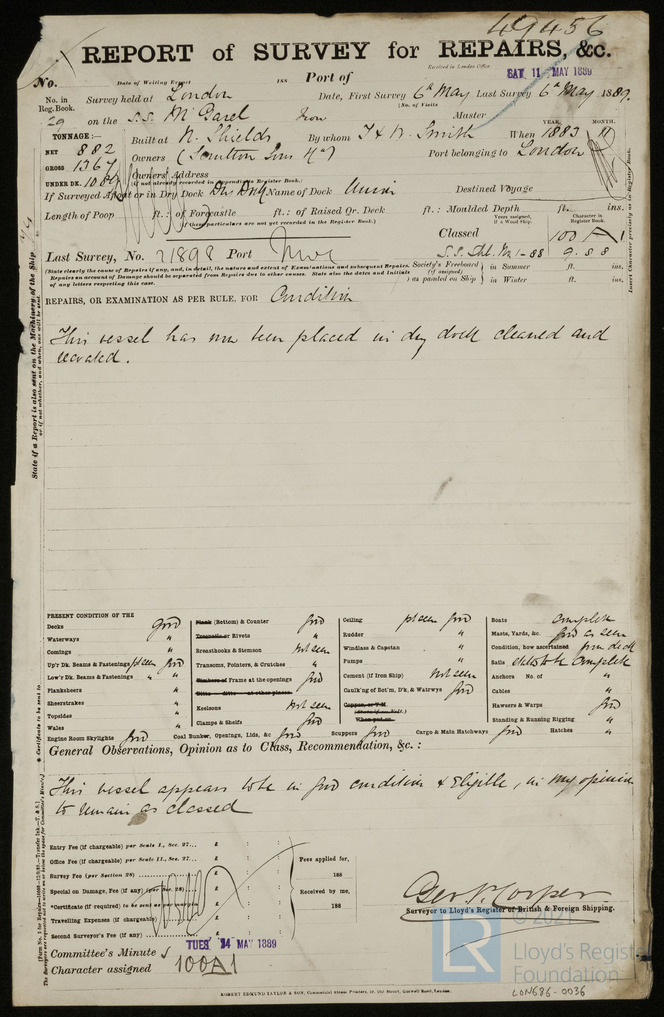 49456
REPORT of SURVEY for REPAIRS, &c.
Received in London Office
No.
Date of Writing Report 188 Port of
SAT. 11 MAY 1889
No. in Reg. Book.
Survey held at London Date, First Survey 6th May Last Survey 6th May 1889.
(No. of Visits
29 on the S.S. McGarel Iron Master
TONNAGE:—
YEAR. MONTH.
Built at N. Shields By whom T & W. Smith When 1883 11
NET 882
GROSS 1367
Owners Port belonging to London
UNDER DK. 1084
Owners' Address
(if not already recorded in Appendix to Register Book.)
If Surveyed Afloat or in Dry Dock Dry Dock Name of Dock Union Destined Voyage
Length of Poop ft.: of Forecastle ft.: of Raised Qr. Deck ft.: Moulded Depth ft. ins.
(if these particulars are not yet recorded in the Register Book.)
Years assigned, if a Wood ship. Character in Register Book.
Classed 100 A 1
Last Survey, No. 21898 Port Nwc
S.S. Shl. No 1-88 9.88
(State clearly the cause of Repairs if any, and, in detail, the nature and extent of Examinations and subsequent Repairs. Repairs on account of Damage should be separated from Repairs due to other causes. State also the dates and initials of any letters respecting this case.
Society's Freeboard (if assigned) as painted on Ship
in Summer ft. ins.
in Winter ft. ins.
REPAIRS, OR EXAMINATION AS PER RULE, FOR Condition
This vessel has now been placed in dry dock cleaned and
recoated.
PRESENT CONDITION OF THE
Decks good
Waterways "
Comings "
Up'r Dk. Beams & Fastenings pt seen good
Low'r Dk. Beams & Fastenings " "
Planksheers "
Sheerstrakes "
Topsides "
Wales "
Engine Room Skylights good
Plank (Bottom) & Counter good
Treenails or Rivets "
Breasthooks & Stemson not seen
Transoms, Pointers, & Crutches "
Timbers of Frame at the openings good
Ditto ditto at other places
Keelsons not seen
Clamps & Shelfs good
Coal Bunker, Openings, Lids, &c good
Ceiling pt seen good
Rudder "
Windlass & Capstan "
Pumps "
Cement (if Iron Ship) not seen
Caulk'ng of Bot'm, D'k, & Watrwys good
Copper, or Y.M.
When put on
Scuppers good
Cargo & Main Hatchways good
Boats complete
Masts, Yards, &c. good as seen
Condition, how ascertained from deck
Sails stated to be complete
Anchors No. of "
Cables "
Hawsers & Warps good
Standing & Running Rigging "
Hatches "
General Observations, Opinion as to Class, Recommendation, &c. :
This vessel appears to be in good condition & Eligible, in my opinion
to remain as classed
Entry Fee (if chargeable) per Scale I., Sec. 27... £ : :
Office Fee (if chargeable) per Scale II., Sec. 27... £ : :
Survey Fee (per Section 28) £ : :
Special on Damage, Fee (if any) (per Sec. 28) £ : :
*Certificate (if required) to be sent as per margin £ : :
Travelling Expenses (if chargeable) £ : :
Second Surveyor's Fee (if any) £ : :
Fees applied for,
188
Received by me,
188
Surveyor to Lloyd's Register of British & Foreign Shipping.
Committee's Minute
TUES. 14 MAY 1889
Character assigned 100A1
ROBERT EDMUND TAYLOR & SON, Commercial Steam Printers, 19, Old Street, Goswell Road, London.
State if a Report is also sent on the Machinery of the Ship
or if not whether, and when, one will be sent.
* Certificate to be sent to
Insert Character precisely as in Register Book.
© 2021
LR
Lloyd's Register
Foundation
LON686-0036